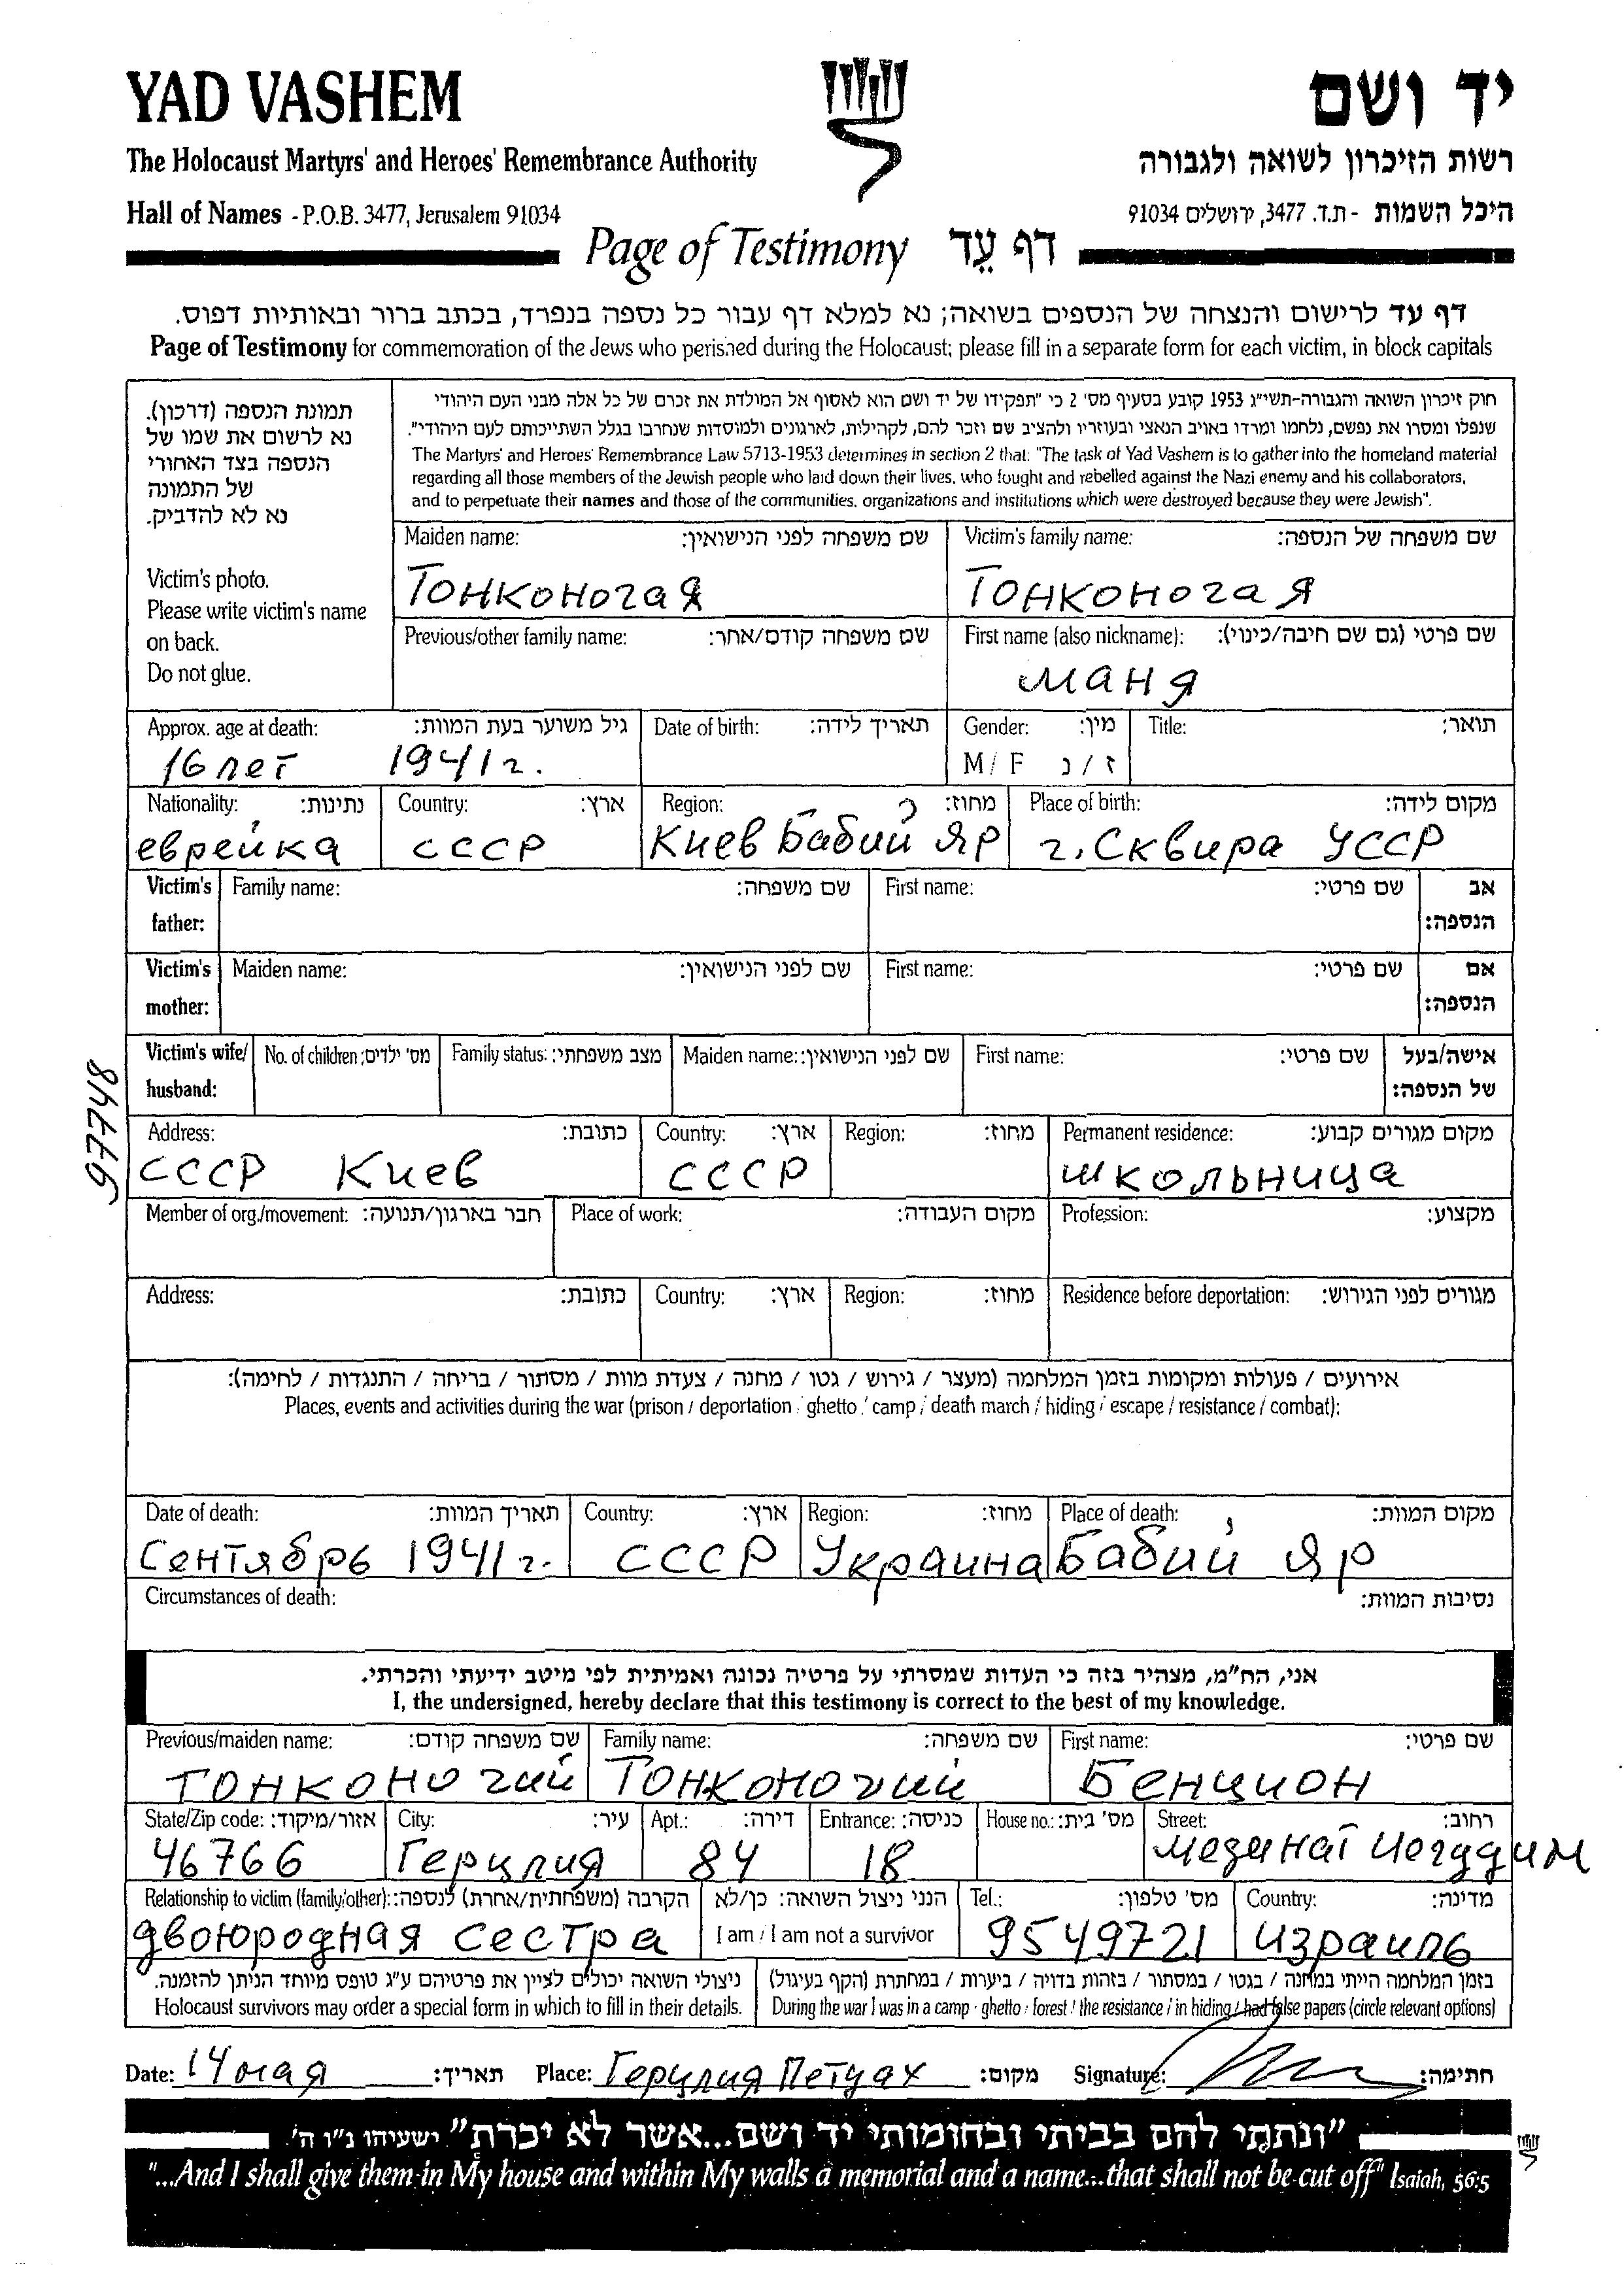 YAD VASHEM
יד ושם
The Holocaust Martyrs' and Heroes' Remembrance Authority
רשות הזיכרון לשואה ולגבורה
Hall of Names - P.O.B. 3477, Jerusalem 91034
היכל השמות - ת.ד. 3477, ירושלים 91034
Page of Testimony דף עֵד
דף עד לרישום והנצחה של הנספים בשואה; נא למלא דף עבור כל נספה בנפרד, בכתב ברור ובאותיות דפוס.
Page of Testimony for commemoration of the Jews who perished during the Holocaust; please fill in a separate form for each victim, in block capitals
תמונת הנספה (דרכון).
נא לרשום את שמו של
הנספה בצד האחורי
של התמונה
נא לא להדביק.
Victim's photo.
Please write victim's name
on back.
Do not glue.
חוק זיכרון השואה והגבורה-תשי"ג 1953 קובע בסעיף מס' 2 כי "תפקידו של יד ושם הוא לאסוף אל המולדת את זכרם של כל אלה מבני העם היהודי
שנפלו ומסרו את נפשם, נלחמו ומרדו באויב הנאצי ובעוזריו ולהציב שם וזכר להם, לקהילות, לארגונים ולמוסדות שנחרבו בגלל השתייכותם לעם היהודי".
The Martyrs' and Heroes' Remembrance Law 5713-1953 determines in section 2 that: "The task of Yad Vashem is to gather into the homeland material
regarding all those members of the Jewish people who laid down their lives, who fought and rebelled against the Nazi enemy and his collaborators,
and to perpetuate their names and those of the communities, organizations and institutions which were destroyed because they were Jewish".
Maiden name: שם משפחה לפני הנישואין: Victim's family name: שם משפחה של הנספה:
Тонконогая Тонконогая
Previous/other family name: שם משפחה קודם/אחר: First name (also nickname): שם פרטי (גם שם חיבה/כינוי):
Маня
Approx. age at death: גיל משוער בעת המוות: Date of birth: תאריך לידה: Gender: מין: Title: תואר:
16 лет 1941 г. M / F ז / נ
Nationality: נתינות: Country: ארץ: Region: מחוז: Place of birth: מקום לידה:
еврейка СССР Киев Бабий Яр г. Сквира УССР
Victim's father: Family name: שם משפחה: First name: שם פרטי: אב הנספה:
Victim's mother: Maiden name: שם לפני הנישואין: First name: שם פרטי: אם הנספה:
Victim's wife/ husband: No. of children: מס' ילדים: Family status: מצב משפחתי: Maiden name: שם לפני הנישואין: First name: שם פרטי: אישה/בעל של הנספה:
97748
Address: כתובת: Country: ארץ: Region: מחוז: Permanent residence: מקום מגורים קבוע:
СССР Киев СССР школьница
Member of org./movement: חבר בארגון/תנועה: Place of work: מקום העבודה: Profession: מקצוע:
Address: כתובת: Country: ארץ: Region: מחוז: Residence before deportation: מגורים לפני הגירוש:
אירועים / פעולות ומקומות בזמן המלחמה (מעצר / גירוש / גטו / מחנה / צעדת מוות / מסתור / בריחה / התנגדות / לחימה):
Places, events and activities during the war (prison / deportation / ghetto / camp / death march / hiding / escape / resistance / combat):
Date of death: תאריך המוות: Country: ארץ: Region: מחוז: Place of death: מקום המוות:
Сентябрь 1941 г. СССР Украина Бабий Яр
Circumstances of death: נסיבות המוות:
אני, הח"מ, מצהיר בזה כי העדות שמסרתי על פרטיה נכונה ואמיתית לפי מיטב ידיעתי והכרתי.
I, the undersigned, hereby declare that this testimony is correct to the best of my knowledge.
Previous/maiden name: שם משפחה קודם: Family name: שם משפחה: First name: שם פרטי:
Тонконогий Тонконогий Бенцион
State/Zip code: אזור/מיקוד: City: עיר: Apt.: דירה: Entrance: כניסה: House no.: מס' בית: Street: רחוב:
46766 Герцлия 84 18 Мединат Иегудим
Relationship to victim (family/other): הקרבה (משפחתית/אחרת) לנספה: הנני ניצול השואה: כן/לא Tel.: מס' טלפון: Country: מדינה:
двоюродная сестра I am / I am not a survivor 9549721 Израиль
ניצולי השואה יכולים לציין את פרטיהם ע"ג טופס מיוחד הניתן להזמנה. בזמן המלחמה הייתי במחנה / בגטו / במסתור / בזהות בדויה / ביערות / במחתרת (הקף בעיגול)
Holocaust survivors may order a special form in which to fill in their details. During the war I was in a camp / ghetto / forest / the resistance / in hiding / had false papers (circle relevant options)
Date: 14 мая תאריך: Place: Герцлия Петуах מקום: Signature: חתימה:
"ונתתי להם בביתי ובחומותי יד ושם...אשר לא יכרת" ישעיהו נ"ו ה'.
"...And I shall give them in My house and within My walls a memorial and a name...that shall not be cut off" Isaiah, 56:5